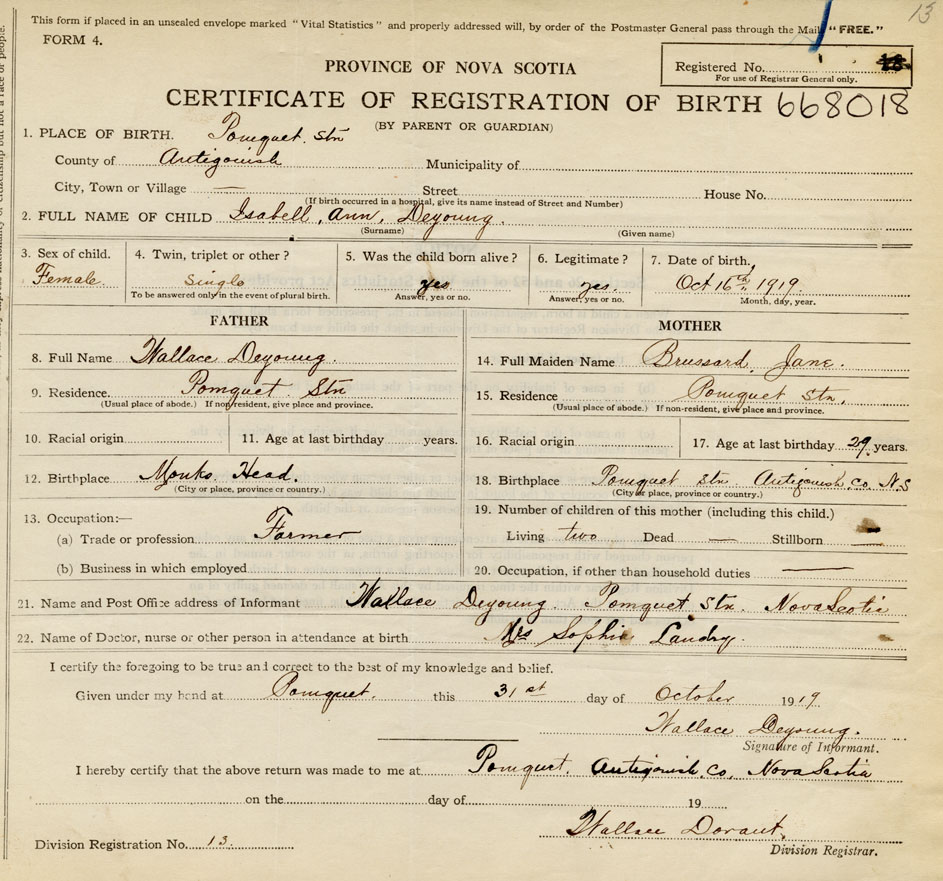 This form if placed in an unsealed envelope marked "Vital Statistics" and properly addressed will, by order of the Postmaster General pass through the Mail "FREE."
13
FORM 4.
Registered No.
For use of Registrar General only.
PROVINCE OF NOVA SCOTIA
CERTIFICATE OF REGISTRATION OF BIRTH 668018
(BY PARENT OR GUARDIAN)
1. PLACE OF BIRTH. Pomquet Stn
County of Antigonish Municipality of
City, Town or Village — Street House No.
(If birth occurred in a hospital, give its name instead of Street and Number)
2. FULL NAME OF CHILD Isabell, Ann, Deyoung.
(Surname) (Given name)
3. Sex of child. 4. Twin, triplet or other? 5. Was the child born alive? 6. Legitimate? 7. Date of birth.
Female. Single yes yes. Oct 16th, 1919.
To be answered only in the event of plural birth. Answer, yes or no. Answer, yes or no. Month, day, year.
FATHER MOTHER
8. Full Name Wallace Deyoung. 14. Full Maiden Name Brussard, Jane.
9. Residence. Pomquet Stn 15. Residence Pomquet Stn,
(Usual place of abode.) If non-resident, give place and province. (Usual place of abode.) If non-resident, give place and province.
10. Racial origin 11. Age at last birthday years. 16. Racial origin 17. Age at last birthday 29 years.
12. Birthplace Monks Head. 18. Birthplace Pomquet Stn Antigonish Co. N.S
(City or place, province or country.) (City or place, province or country.)
13. Occupation:— 19. Number of children of this mother (including this child.)
(a) Trade or profession Farmer Living two Dead — Stillborn —
(b) Business in which employed 20. Occupation, if other than household duties —
21. Name and Post Office address of Informant Wallace Deyoung. Pomquet Stn. Nova Scotia
22. Name of Doctor, nurse or other person in attendance at birth Mrs Sophie Landry.
I certify the foregoing to be true and correct to the best of my knowledge and belief.
Given under my hand at Pomquet. this 31st day of October 1919.
Wallace Deyoung.
Signature of Informant.
I hereby certify that the above return was made to me at Pomquet. Antigonish Co, Nova Scotia
on the day of 19
Wallace Dorant,
Division Registration No. 13. Division Registrar.